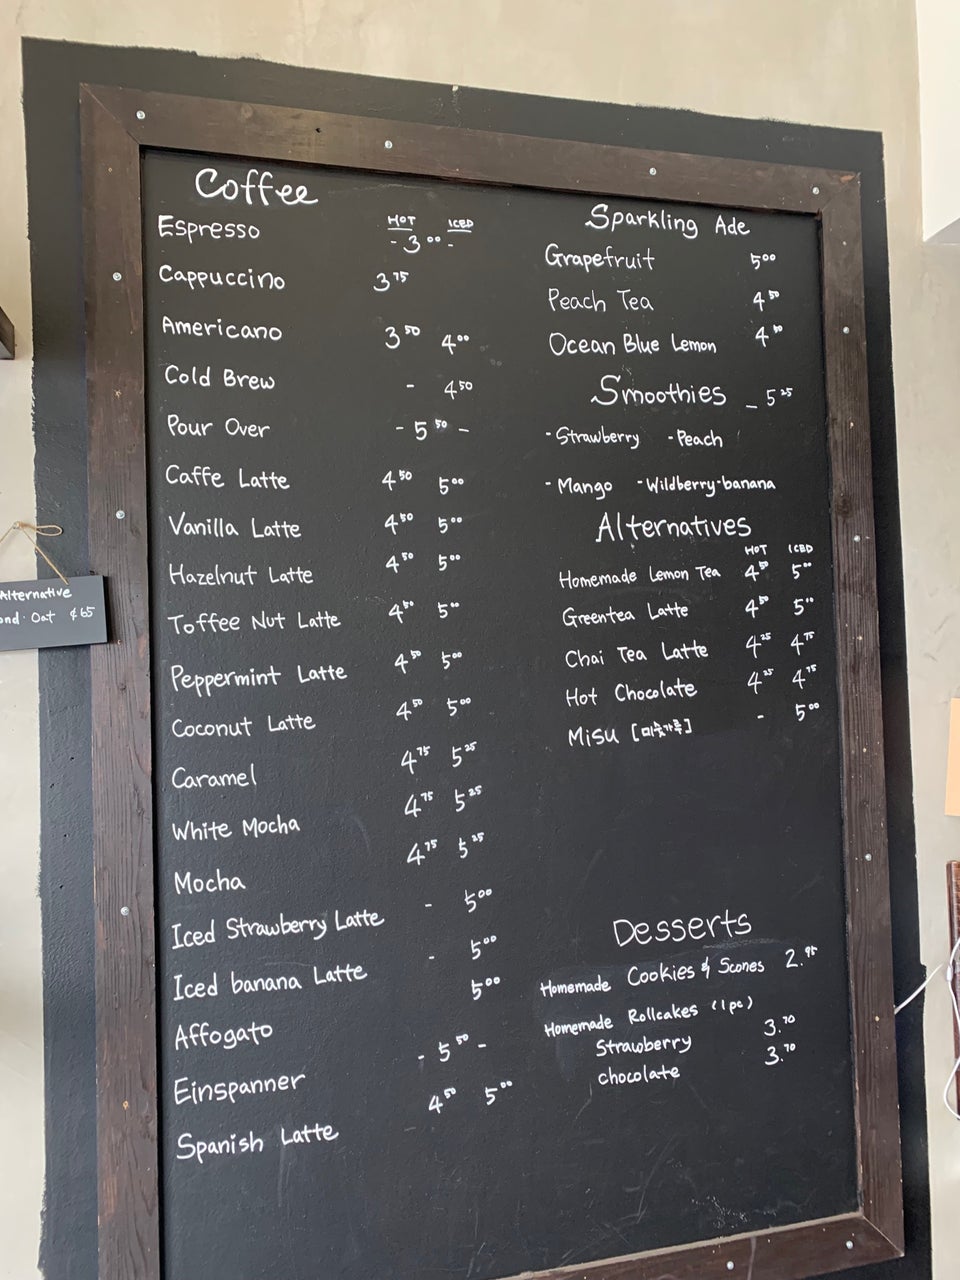 Coffee
HOT ICED
Espresso - 3⁰⁰ -
Cappuccino 3⁷⁵
Americano 3⁵⁰ 4⁰⁰
Cold Brew - 4⁵⁰
Pour Over - 5⁵⁰ -
Caffe Latte 4⁵⁰ 5⁰⁰
Vanilla Latte 4⁵⁰ 5⁰⁰
Hazelnut Latte 4⁵⁰ 5⁰⁰
Toffee Nut Latte 4⁵⁰ 5⁰⁰
Peppermint Latte 4⁵⁰ 5⁰⁰
Coconut Latte 4⁵⁰ 5⁰⁰
Caramel 4⁷⁵ 5²⁵
White Mocha 4⁷⁵ 5²⁵
Mocha 4⁷⁵ 5²⁵
Iced Strawberry Latte - 5⁰⁰
Iced banana Latte - 5⁰⁰
Affogato 5⁰⁰
Einspanner - 5⁵⁰ -
Spanish Latte 4⁵⁰ 5⁰⁰
Sparkling Ade
Grapefruit 5⁰⁰
Peach Tea 4⁵⁰
Ocean Blue Lemon 4⁵⁰
Smoothies - 5²⁵
- Strawberry - Peach
- Mango - Wildberry-banana
Alternatives
HOT ICED
Homemade Lemon Tea 4⁵⁰ 5⁰⁰
Greentea Latte 4⁵⁰ 5⁰⁰
Chai Tea Latte 4²⁵ 4⁷⁵
Hot Chocolate 4²⁵ 4⁷⁵
Misu [미숫가루] - 5⁰⁰
Desserts
Homemade Cookies & Scones 2.⁹⁵
Homemade Rollcakes (1pc)
Strawberry 3.⁷⁰
chocolate 3.⁷⁰
Alternative
Oat ¢65